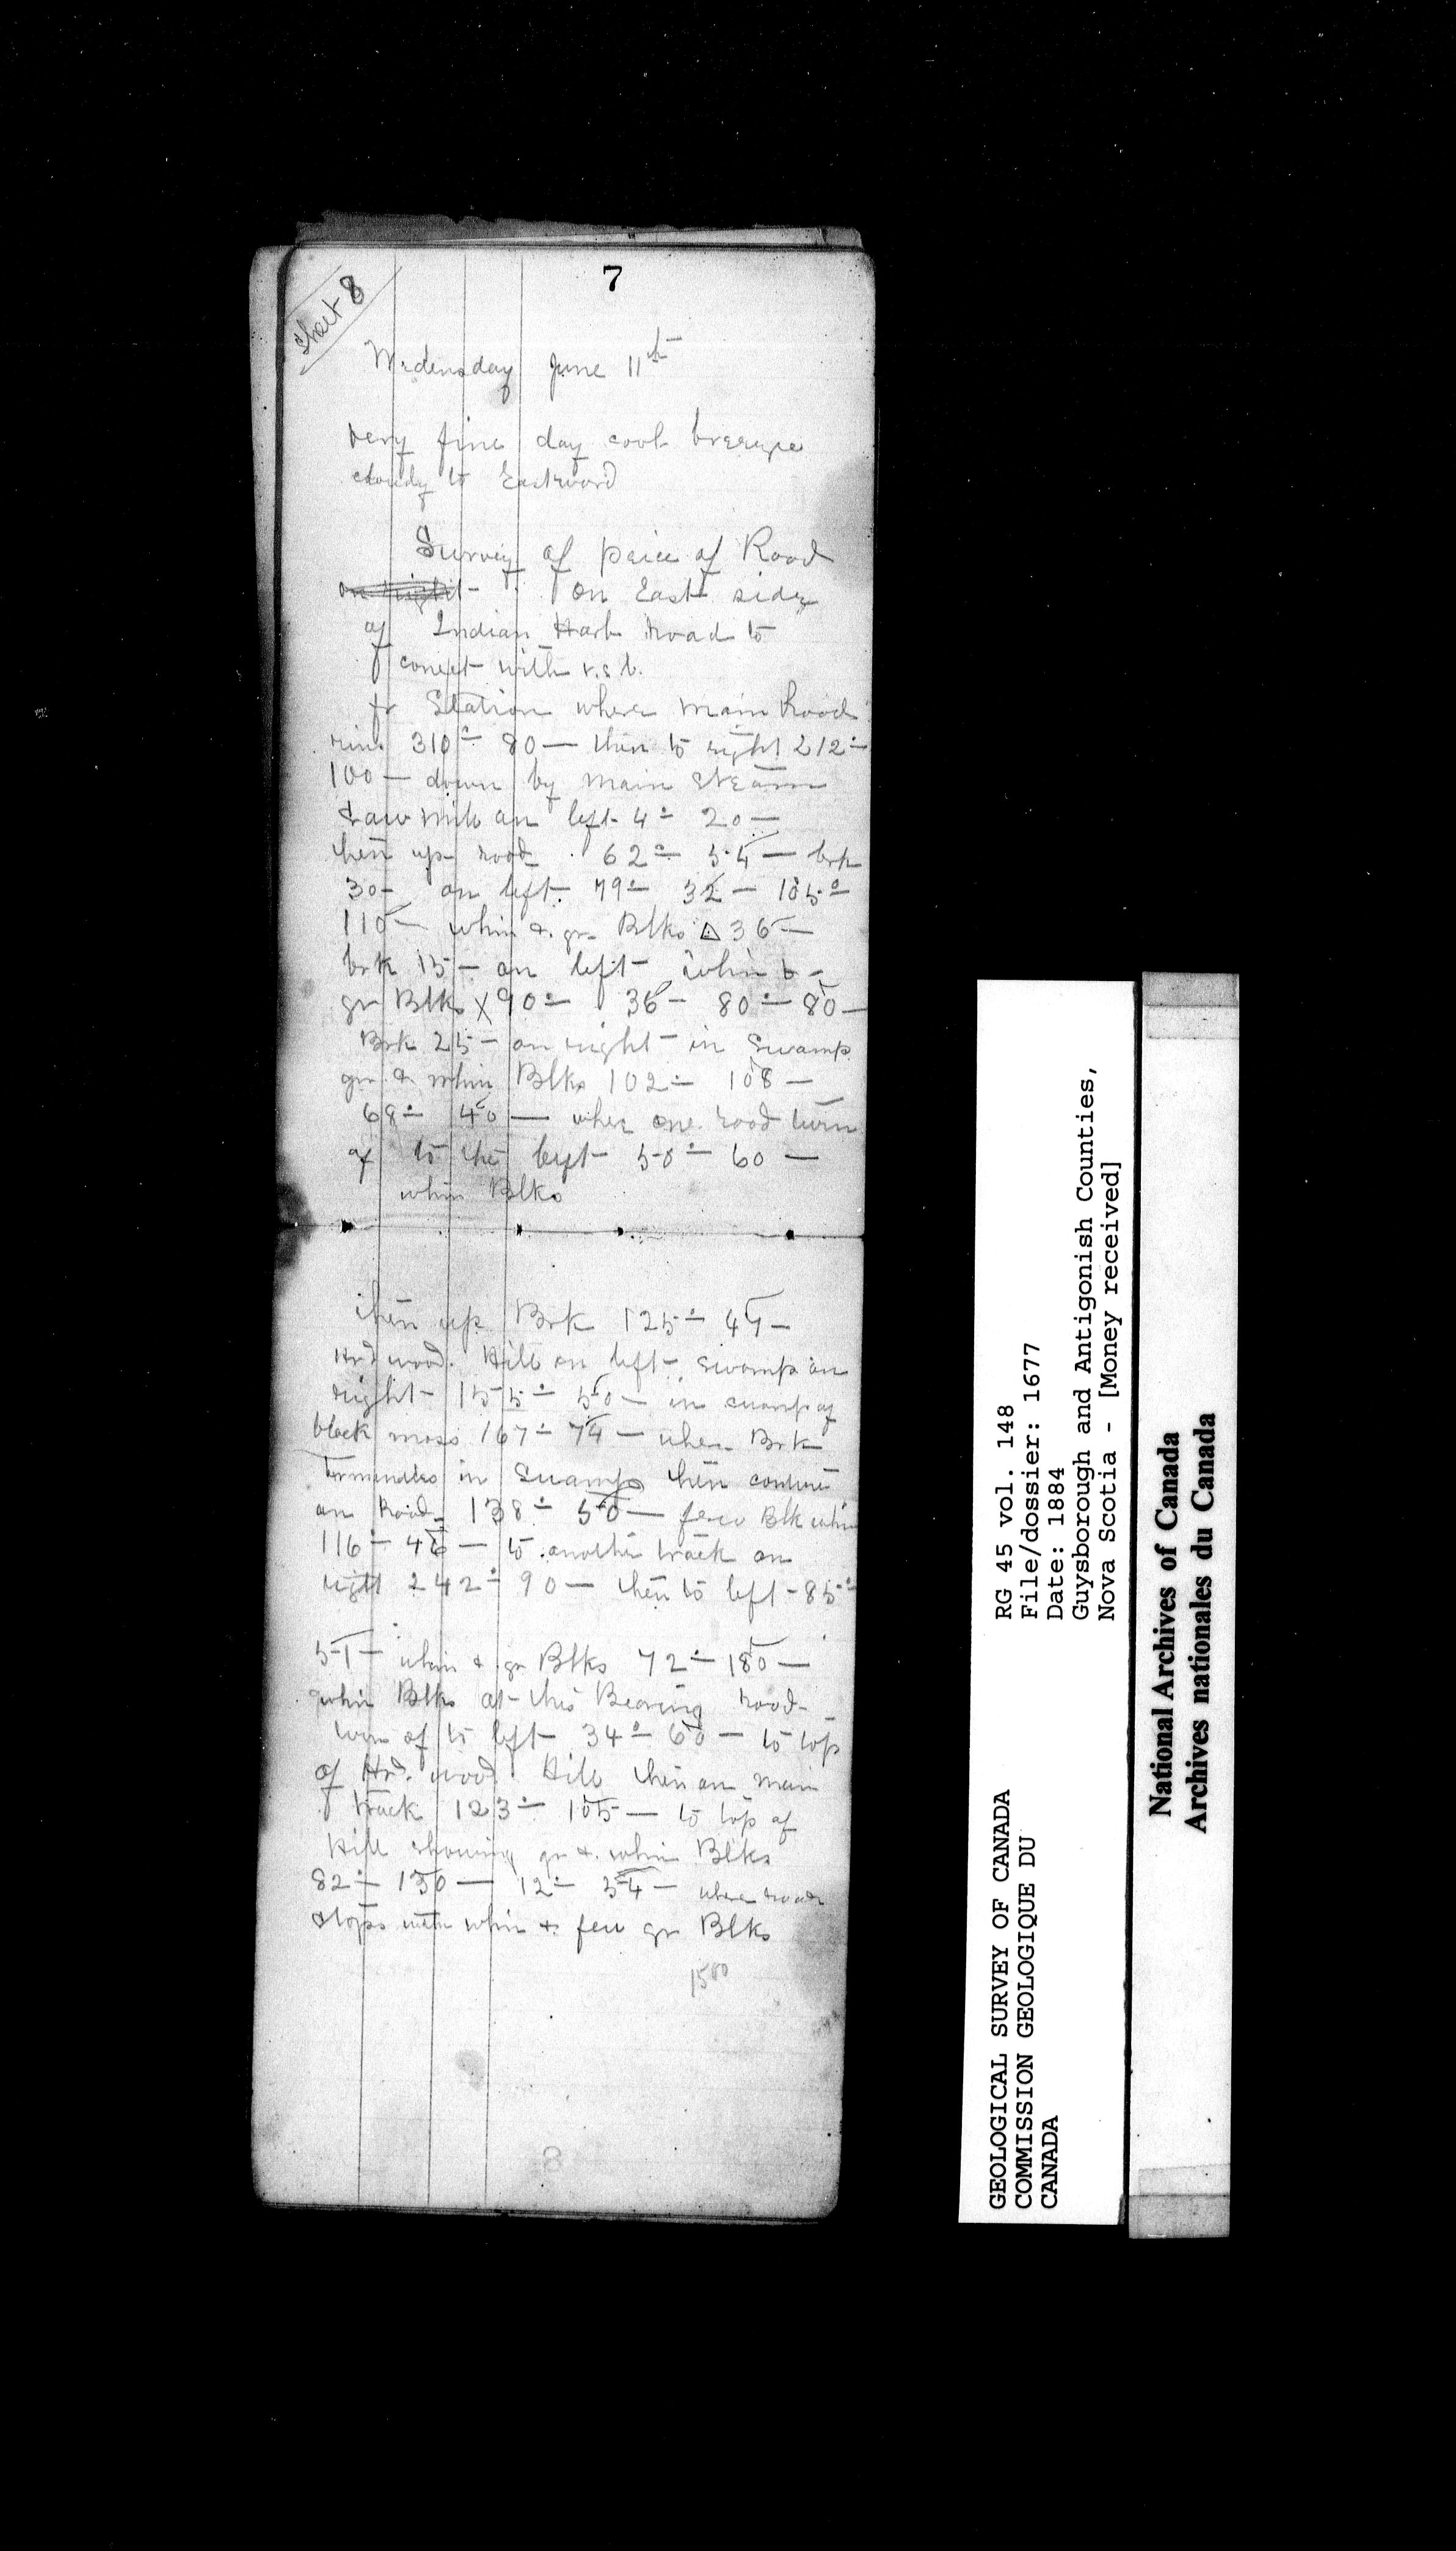 7
Sheet 8
Wedensday June 11th
very fine day cool breeze
cloudy to Eastward
Survey of peice of Road
on right on East side
of Indian Harb Road to
conect with r.s.b.
fr Station where main Road
runs 310° 80— then to right 212°
100— down by main Steam
Saw Mill on left 4° 20—
then up road 62° 54— brk
30— on left 79° 32— 105°
110— whin & gr Blks △ 36—
brk 15— on left whin &
gr Blks X 90° 36— 80° 80—
Brk 25— on right in Swamp
gr & whin Blks 102° 108—
68° 40— wher one road turn
of to the left 50° 60—
whin Blks
then up Brk 125° 49—
Hrd wood Hill on left swamp on
right 155° 50— in swamp of
black moss 167° 74— when Brk
terminates in Swamp then
on Road 138° 50— few Blk whin
116° 46— to another track on
right 242° 90— then to left 85°
51— whin & gr Blks 72° 180—
whin Blks at this Bearing road
turn of to left 34° 60— to top
of Hrd wood Hill then on main
track 123° 105— to top of
Hill showing gr & whin Blks
82° 130— 12° 54— where road
stops with whin & few gr Blks
1500
GEOLOGICAL SURVEY OF CANADA
COMMISSION GEOLOGIQUE DU
CANADA
RG 45 vol. 148
File/dossier: 1677
Date: 1884
Guysborough and Antigonish Counties,
Nova Scotia - [Money received]
National Archives of Canada
Archives nationales du Canada